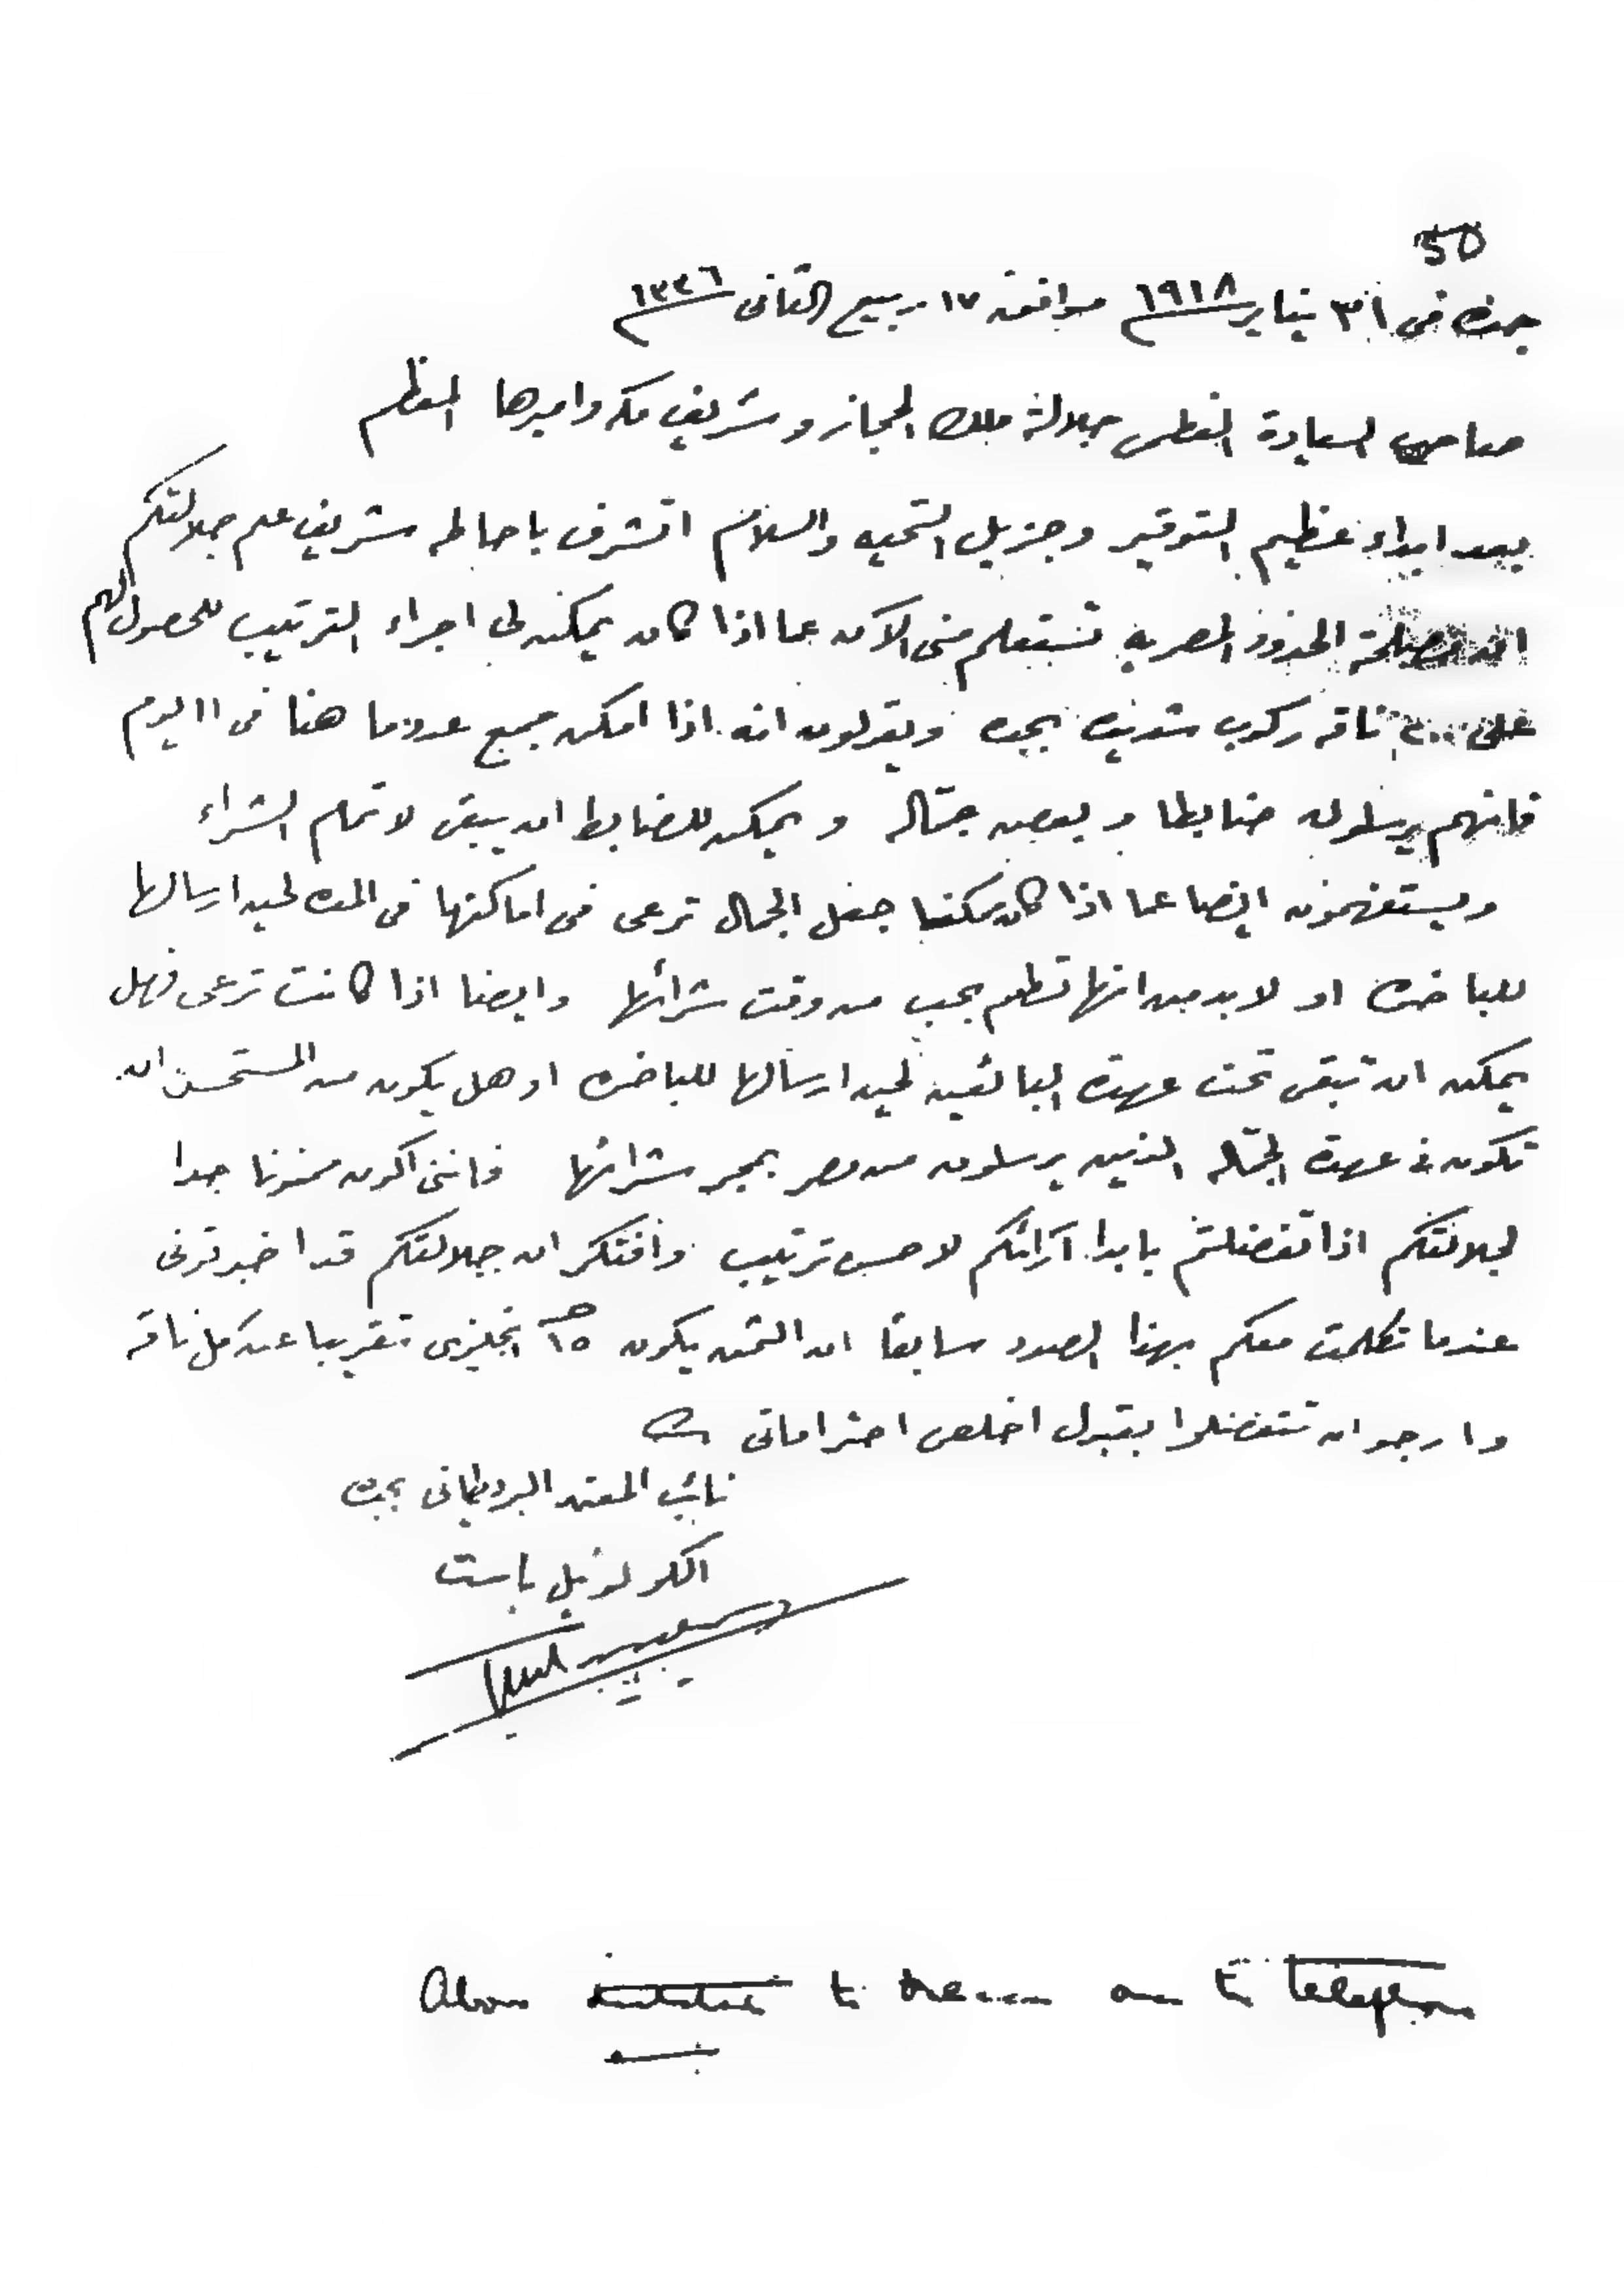 50
جده فى ٣١ يناير ١٩١٨ موافق ١٧ ربيع الثانى ١٣٣٦
صاحب السيادة العظمى جلالة ملك الحجاز وشريف مكه واميرها المعظم
بعد ابداء عظيم التوقير وجزيل التحيه والسلام اتشرف باحاطه شريف علم جلالتكم
ان مصلحة الحدود المصريه تستعلم منى الآن عما اذا كان يمكن لى اجراء الترتيب للحصول لهم
على ٢٠٠٠ ناقه ركوب بجده ويقولون انه اذا امكن جمع عدد ما هنا فى ١١ يوم
فانهم يرسلون ضابطا وبعض جماله ويمكن للضابط ان يبقى لاتمام الشراء
ويستفهمون ايضا عما اذا كان يمكننا جعل الجمال ترعى فى اماكنها فى المده لحين ارسالها
للباخره او لا بد من انها تطعم بحب من وقت شرائها وايضا اذا كانت ترعى فهل
يمكن ان تبقى تحت عهدة البائعين لحين ارسالها للباخره او هل يكون من المستحسن ان
تكون فى عهدة الجماله الذين يرسلون من مصر بمجرد شرائها فاننى اكون ممنونا جدا
لجلالتكم اذا تفضلتم بابداء آرائكم لاحسن ترتيب وافتكر ان جلالتكم قد اخبرتونى
عندما تكلمت معكم بهذا الصدد سابقا ان الثمن يكون ١٥ انجليزى تقريبا عن كل ناقه
وارجو ان تتفضلوا بقبول اخلص احتراماتى
نائب المعتمد البريطانى بجده
الكولونيل باست
Above to on the telephone